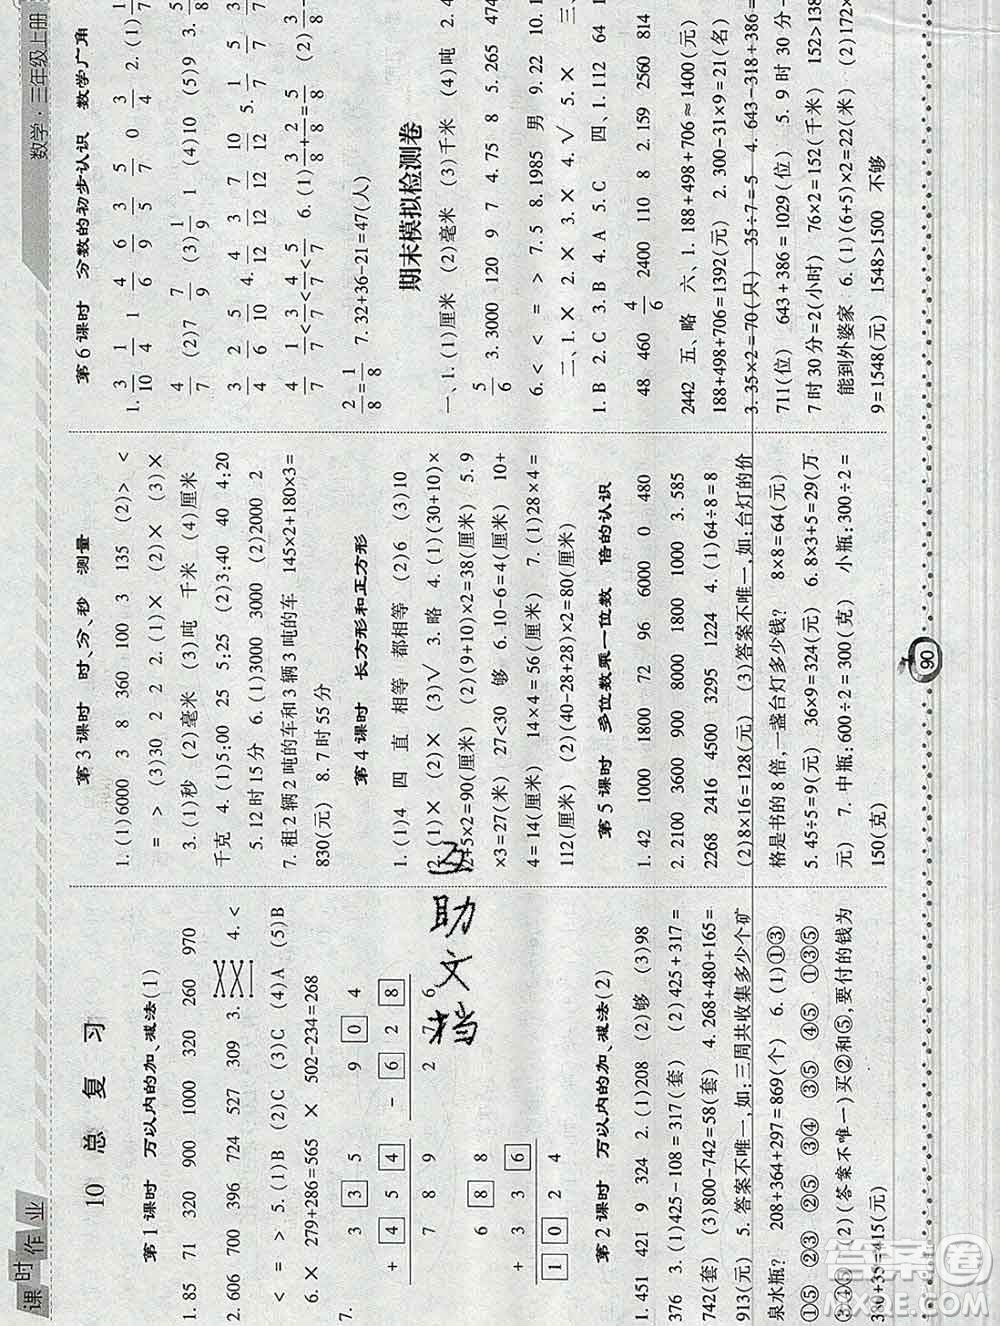 课时作业
10 总复习
第1课时 万以内的加、减法(1)
1. 85 71 320 900 1000 320 260 970
2. 606 700 396 724 527 309 3. 4. <
< = > 5. (1)B (2)C (3)C (4)A (5)B
6. × 279+286=565 × 502-234=268
7.
3 3 5
+ 4 5 4
7 8 9
9 0 4
- 6 2 8
2 7 6
6 8 8
+ 3 3 6
1 0 2 4
第2课时 万以内的加、减法(2)
1. 451 421 9 324 2. (1)208 (2)够 (3)98
376 3. (1)425-108=317(套) (2)425+317=
742(套) (3)800-742=58(套) 4. 268+480+165=
913(元) 5. 答案不唯一,如:三周共收集多少个矿
泉水瓶? 208+364+297=869(个) 6. (1)①③
①⑤ ②③ ②⑤ ③④ ③⑤ ④⑤ ①③⑤
③④⑤ (2)(答案不唯一)买②和⑤,要付的钱为
380+35=415(元)
第3课时 时、分、秒 测量
1. (1)6000 3 8 360 100 3 135 (2)> <
= > (3)30 2 2 2. (1)× (2)× (3)×
3. (1)秒 (2)毫米 (3)吨 千米 (4)厘米
千克 4. (1)5:00 25 5:25 (2)3:40 40 4:20
5. 12时15分 6. (1)3000 3000 (2)2000 2
7. 租2辆2吨的车和3辆3吨的车 145×2+180×3=
830(元) 8. 7时55分
第4课时 长方形和正方形
1. (1)4 四 直 相等 都相等 (2)6 (3)10
2. (1)× (2)× (3)√ 3. 略 4. (1)(30+10)×
2+5×2=90(厘米) (2)(9+10)×2=38(厘米) 5. 9
×3=27(米) 27<30 够 6. 10-6=4(厘米) 10+
4=14(厘米) 14×4=56(厘米) 7. (1)28×4=
112(厘米) (2)(40-28+28)×2=80(厘米)
第5课时 多位数乘一位数 倍的认识
1. 42 1000 1800 72 96 6000 0 480
2. 2100 3600 900 8000 1800 1000 3. 585
2268 2416 4500 3295 1224 4. (1)64÷8=8
(2)8×16=128(元) (3)答案不唯一,如:台灯的价
格是书的8倍,一盏台灯多少钱? 8×8=64(元)
5. 45÷5=9(元) 36×9=324(元) 6. 8×3+5=29(万
元) 7. 中瓶:600÷2=300(克) 小瓶:300÷2=
150(克)
数学·三年级上册
第6课时 分数的初步认识 数学广角
期末模拟检测卷
一、1. (1)厘米 (2)毫米 (3)千米 (4)吨 2. 4
5/6 3. 3000 120 9 7 4. 75 8 5. 265 474
6. < < = > 7. 5 8. 1985 男 9. 22 10. 1
二、1. × 2. × 3. × 4. √ 5. × 三、
1. B 2. C 3. B 4. A 5. C 四、1. 112 64 1
48 460 4/6 2400 110 8 2. 159 2560 814
2442 五、略 六、1. 188+498+706≈1400(元)
188+498+706=1392(元) 2. 300-31×9=21(名)
3. 35×2=70(只) 35÷7=5 4. 643-318+386=
711(位) 643+386=1029(位) 5. 9时30分-
7时30分=2(小时) 76×2=152(千米) 152>138
能到外婆家 6. (1)(6+5)×2=22(米) (2)172×
9=1548(元) 1548>1500 不够
90
互助文档
答案圈
MXQE.COM